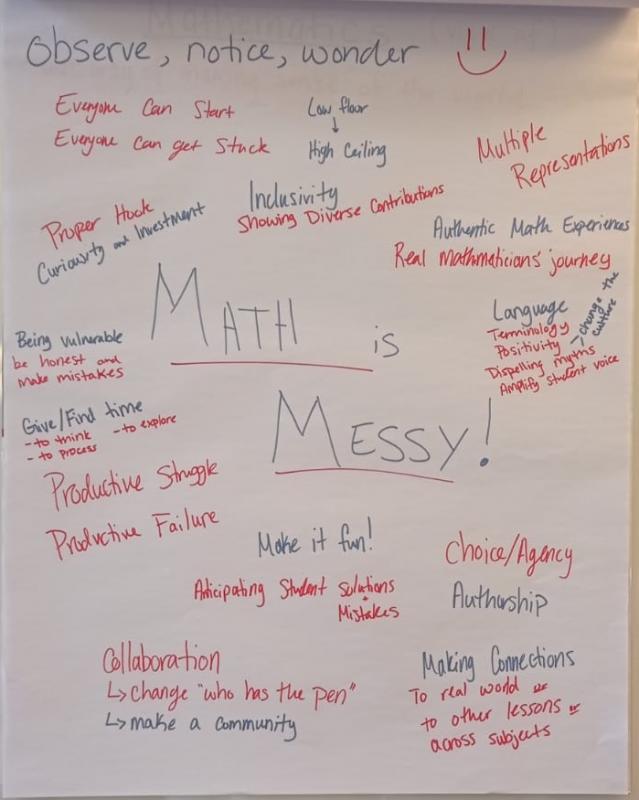 Observe, notice, wonder
Everyone Can Start
Everyone Can get Stuck
Low floor
High Ceiling
Multiple
Representations
Inclusivity
Showing Diverse Contributions
Proper Hook
Curiousity and Investment
Authentic Math Experiences
Real Mathmaticians' journey
MATH is
Language
Terminology
Positivity
change the
culture
Dispelling myths
Amplify student voice
Being vulnerable
be honest and
make mistakes
MESSY!
Give/Find time
- to think - to explore
- to process
Productive Struggle
Productive Failure
Make it fun!
Choice/Agency
Authorship
Anticipating Student solutions
+
Mistakes
Collaboration
↳ change "who has the pen"
↳ make a community
Making Connections
To real world or
to other lessons or
across subjects